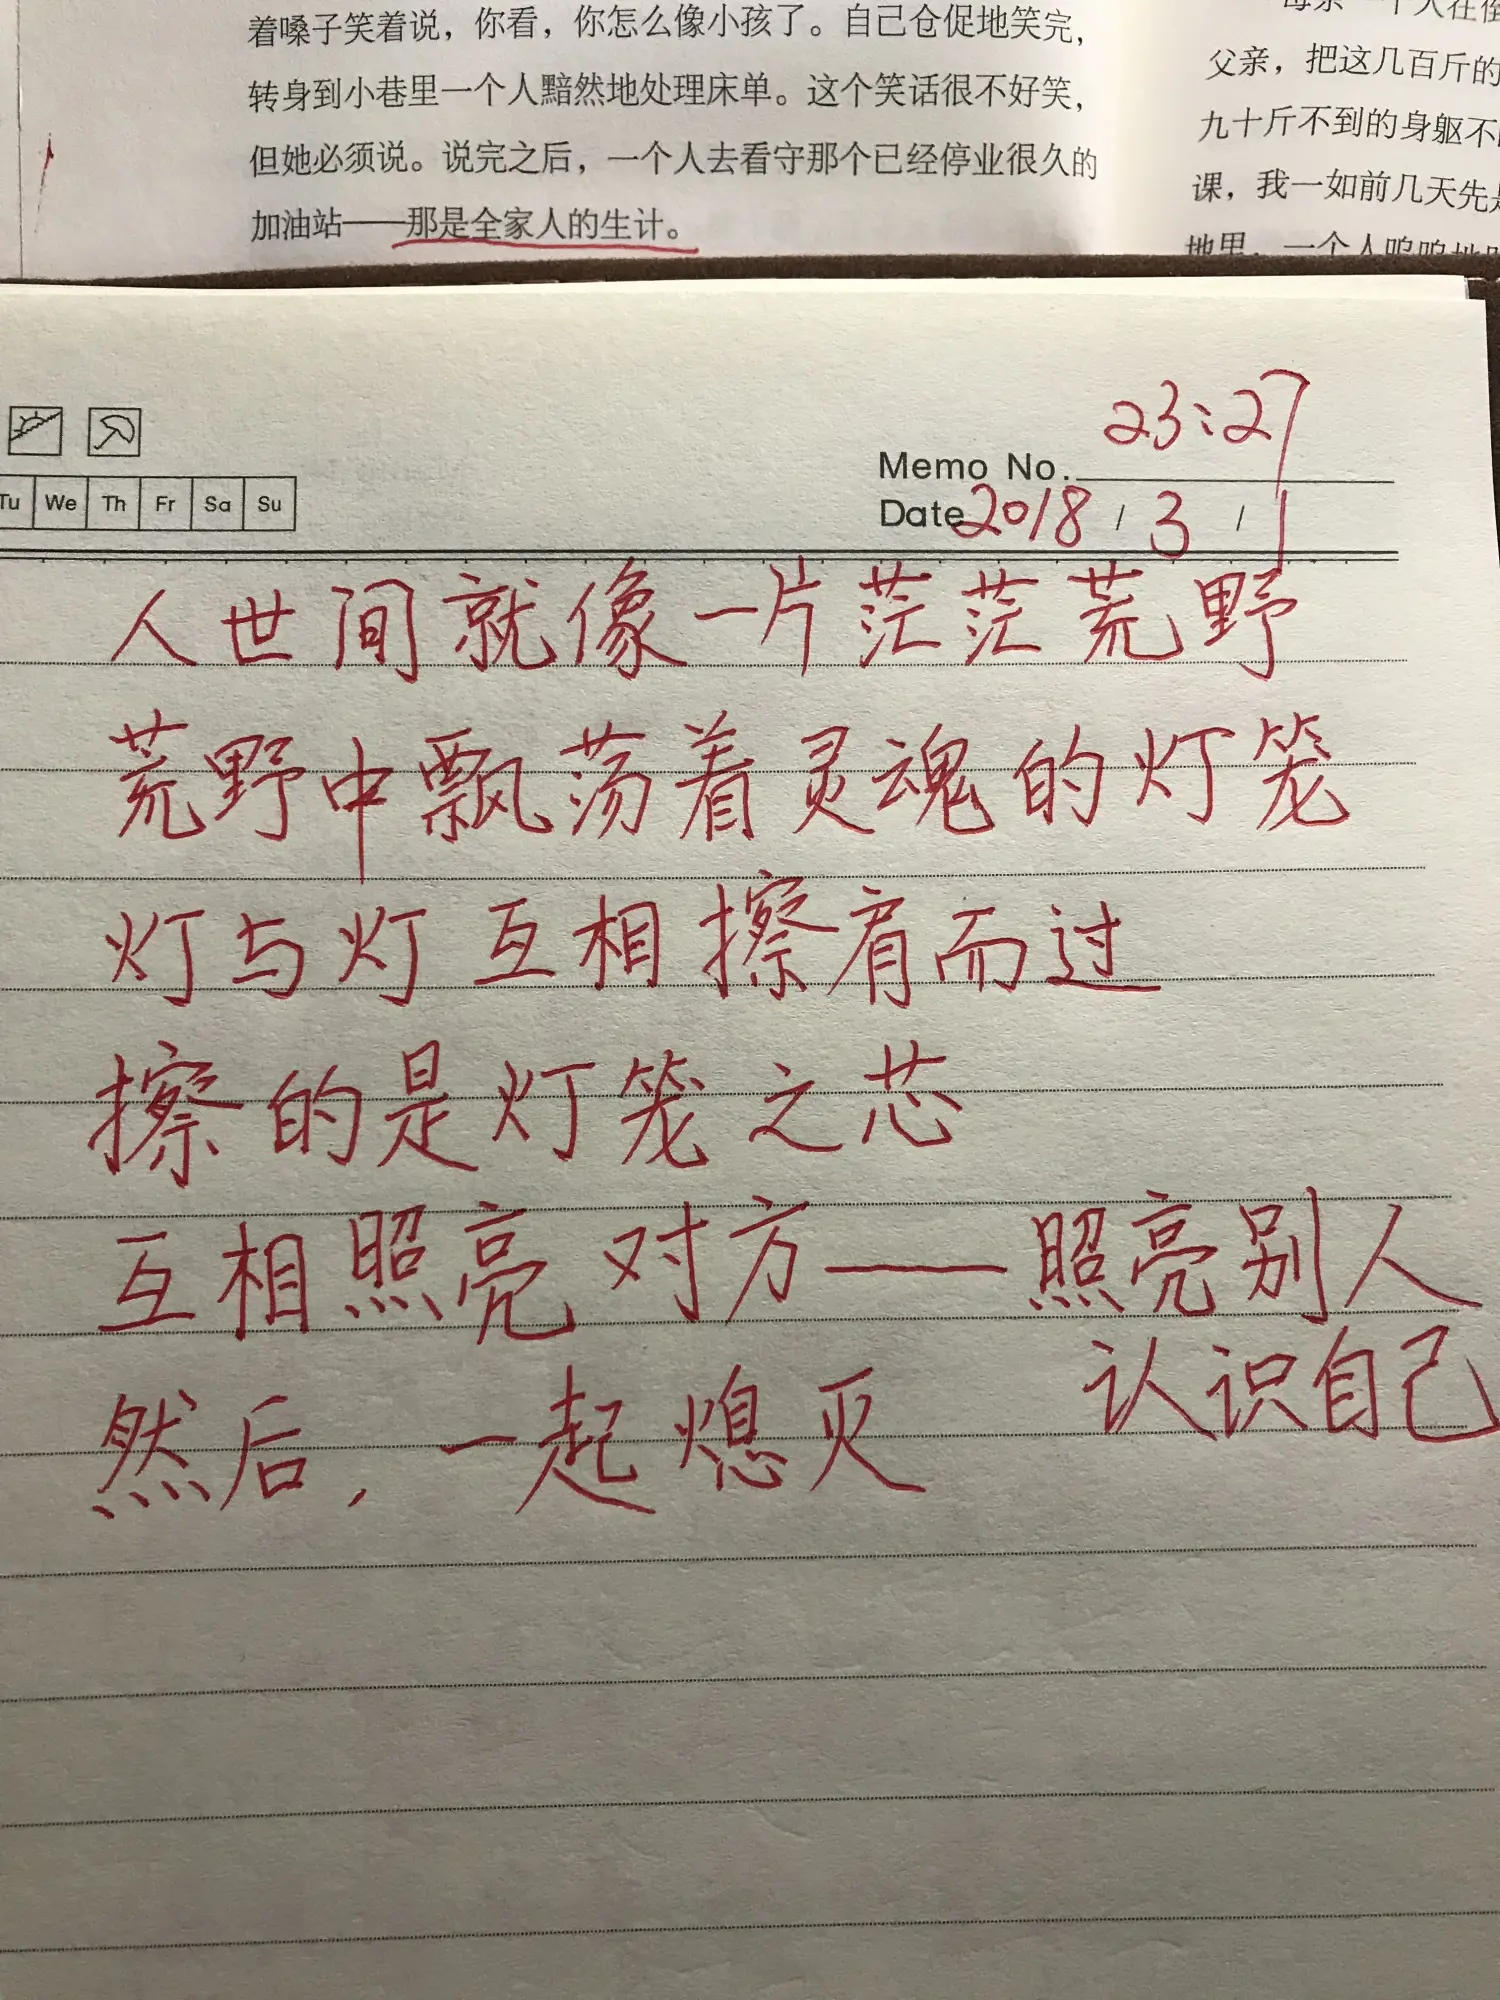 着嗓子笑着说，你看，你怎么像小孩了。自己仓促地笑完，
转身到小巷里一个人黯然地处理床单。这个笑话很不好笑，
但她必须说。说完之后，一个人去看守那个已经停业很久的
加油站——那是全家人的生计。
母亲一个人在
父亲，把这几百斤的
九十斤不到的身躯不
课，我一如前几天先是
地里，一个人呜呜地
23:27
Memo No.
Date 2018 / 3 / 1
Tu We Th Fr Sa Su
人世间就像一片茫茫荒野
荒野中飘荡着灵魂的灯笼
灯与灯互相擦肩而过
擦的是灯笼之芯
互相照亮对方——照亮别人
认识自己
然后，一起熄灭